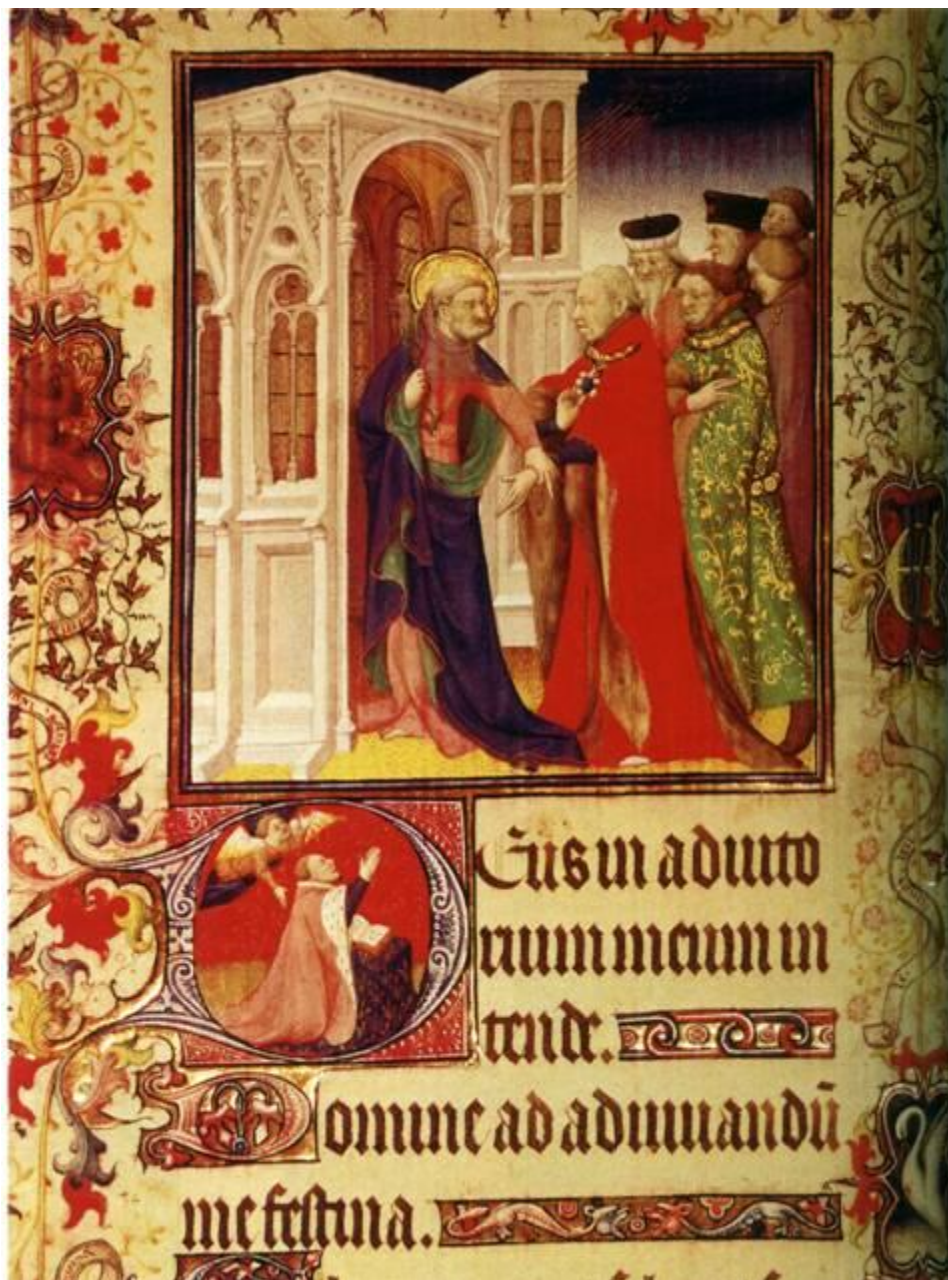 Eus in adiuto
rium meum in
tende.
Domine ad adiuuandū
me festina.